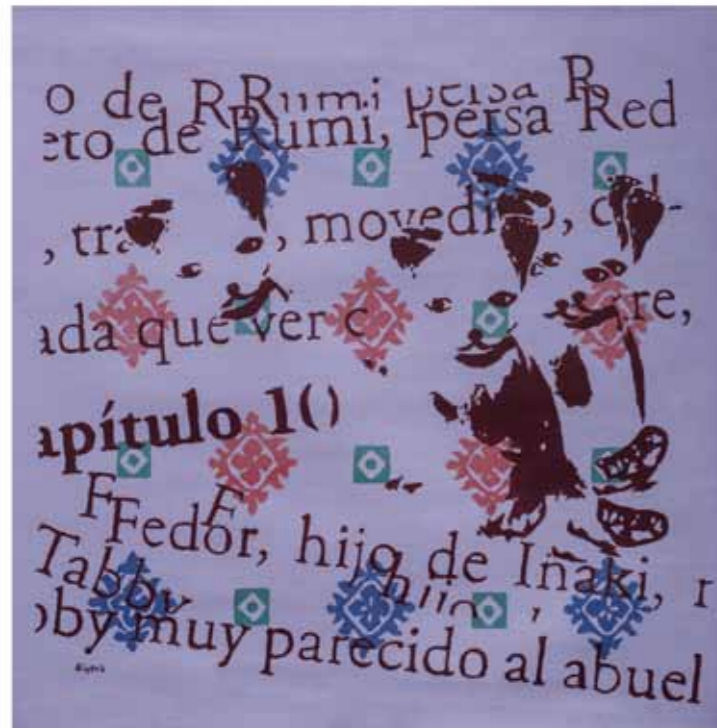 o de RRumi persa R
eto de Rumi, persa Red
, tra , movedi o, c l-
ada que ver c re,
apítulo 1()
F F
Fedor, hijo de Iñaki, r
Tabby hijo
oby muy parecido al abuel